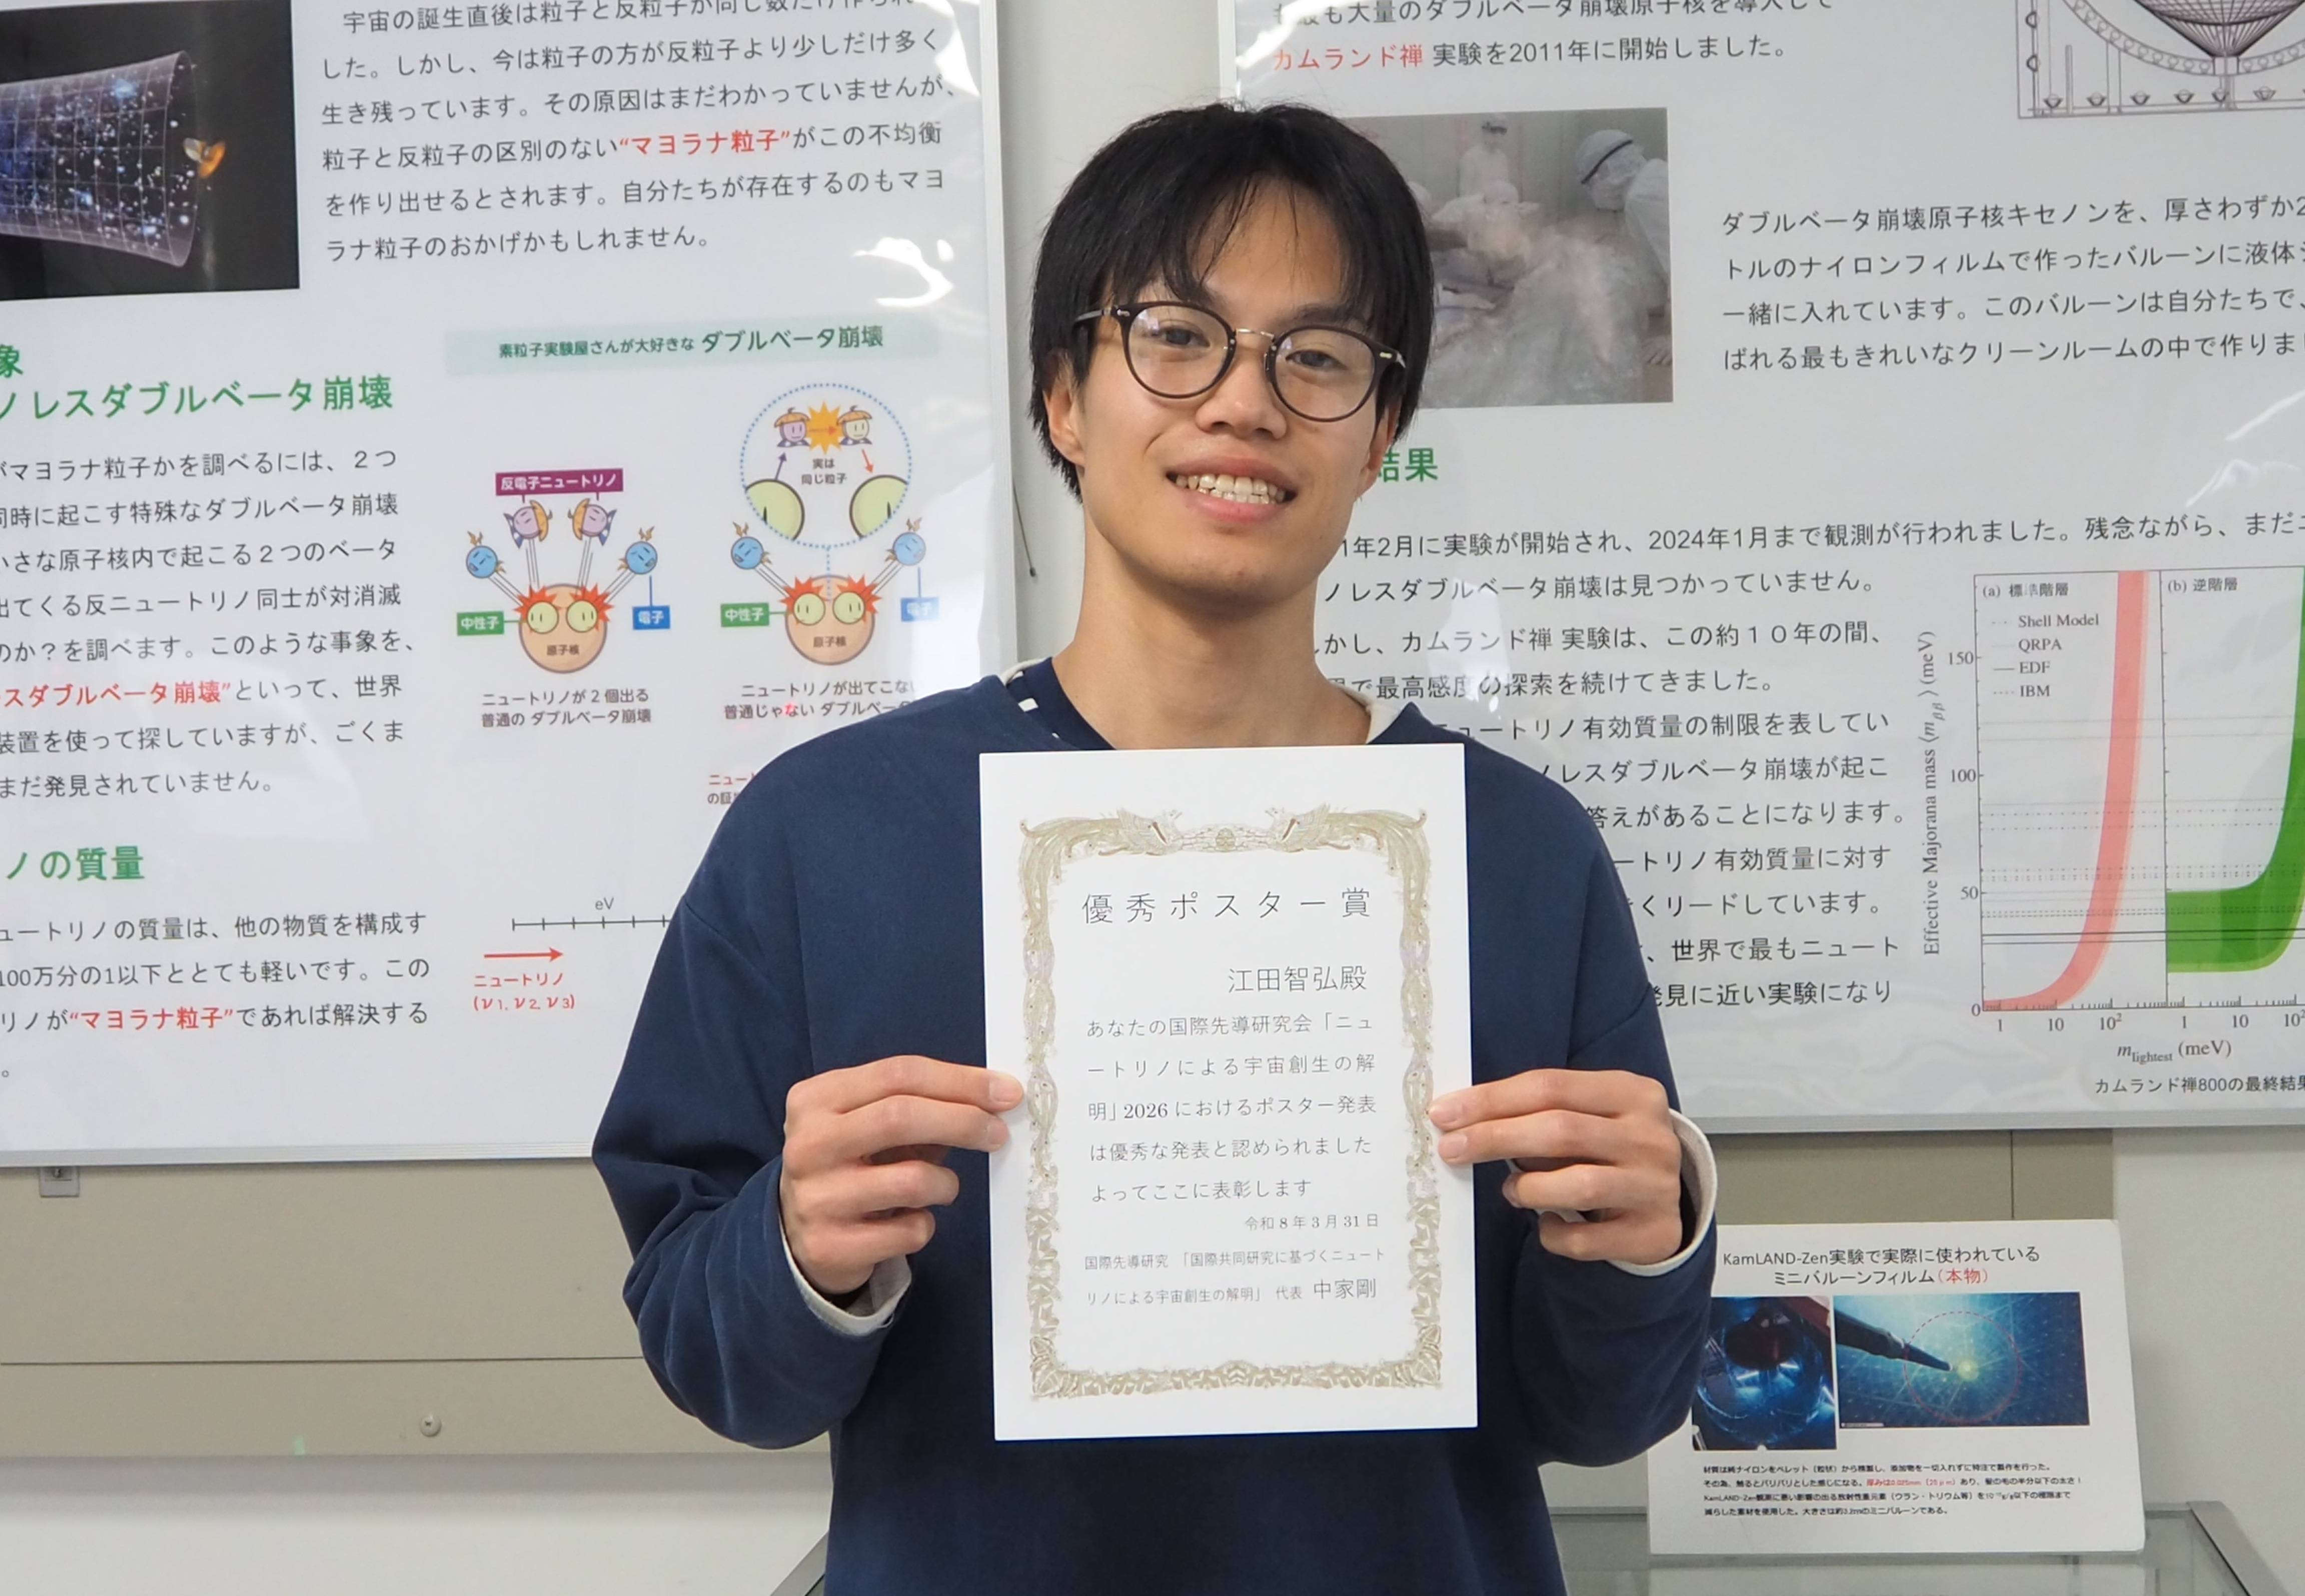 宇宙の誕生直後は粒子と反粒子が同じ数だけ作られ
した。しかし、今は粒子の方が反粒子より少しだけ多く
生き残っています。その原因はまだわかっていませんが、
粒子と反粒子の区別のない“マヨラナ粒子”がこの不均衡
を作り出せるとされます。自分たちが存在するのもマヨ
ラナ粒子のおかげかもしれません。
象
ノレスダブルベータ崩壊
がマヨラナ粒子かを調べるには、２つ
同時に起こす特殊なダブルベータ崩壊
小さな原子核内で起こる２つのベータ
出てくる反ニュートリノ同士が対消滅
のか？を調べます。このような事象を、
スダブルベータ崩壊”といって、世界
装置を使って探していますが、ごくま
まだ発見されていません。
素粒子実験屋さんが大好きな ダブルベータ崩壊
反電子ニュートリノ
中性子
電子
原子核
ニュートリノが２個出る
普通の ダブルベータ崩壊
実は
同じ粒子
中性子
電子
原子核
ニュートリノが出てこない
普通じゃない ダブルベータ
ニュー
の証
ノの質量
ュートリノの質量は、他の物質を構成す
100万分の1以下ととても軽いです。この
リノが“マヨラナ粒子”であれば解決する
。
eV
ニュートリノ
(ν1, ν2, ν3)
も最も大量のダブルベータ崩壊原子核を導入して
カムランド禅 実験を2011年に開始しました。
ダブルベータ崩壊原子核キセノンを、厚さわずか2
トルのナイロンフィルムで作ったバルーンに液体シ
一緒に入れています。このバルーンは自分たちで、
ばれる最もきれいなクリーンルームの中で作りまし
結果
1年2月に実験が開始され、2024年1月まで観測が行われました。残念ながら、まだニ
ノレスダブルベータ崩壊は見つかっていません。
しかし、カムランド禅 実験は、この約１０年の間、
で最高感度の探索を続けてきました。
ュートリノ有効質量の制限を表してい
ノレスダブルベータ崩壊が起こ
答えがあることになります。
ートリノ有効質量に対す
くリードしています。
、世界で最もニュート
発見に近い実験になり
(a) 標準階層
Shell Model
QRPA
EDF
IBM
(b) 逆階層
Effective Majorana mass ⟨mββ⟩ (meV)
150
100
50
0
1 10 10² 1 10 10²
mlightest (meV)
カムランド禅800の最終結果
優秀ポスター賞
江田智弘殿
あなたの国際先導研究会「ニュ
ートリノによる宇宙創生の解
明」2026 におけるポスター発表
は優秀な発表と認められました
よってここに表彰します
令和 8 年 3 月 31 日
国際先導研究 「国際共同研究に基づくニュート
リノによる宇宙創生の解明」 代表 中家剛
KamLAND-Zen実験で実際に使われている
ミニバルーンフィルム（本物）
材質は純ナイロンをペレット（粒状）から精製し、添加物を一切入れずに特注で製作を行った。
その為、触るとパリパリとした感じになる。厚みは0.025mm（25μm）あり、髪の毛の半分以下の太さ！
KamLAND-Zen観測に悪い影響の出る放射性重元素（ウラン・トリウム等）を10⁻¹²g/g以下の極限まで
減らした素材を使用した。大きさは約2.2mのミニバルーンである。